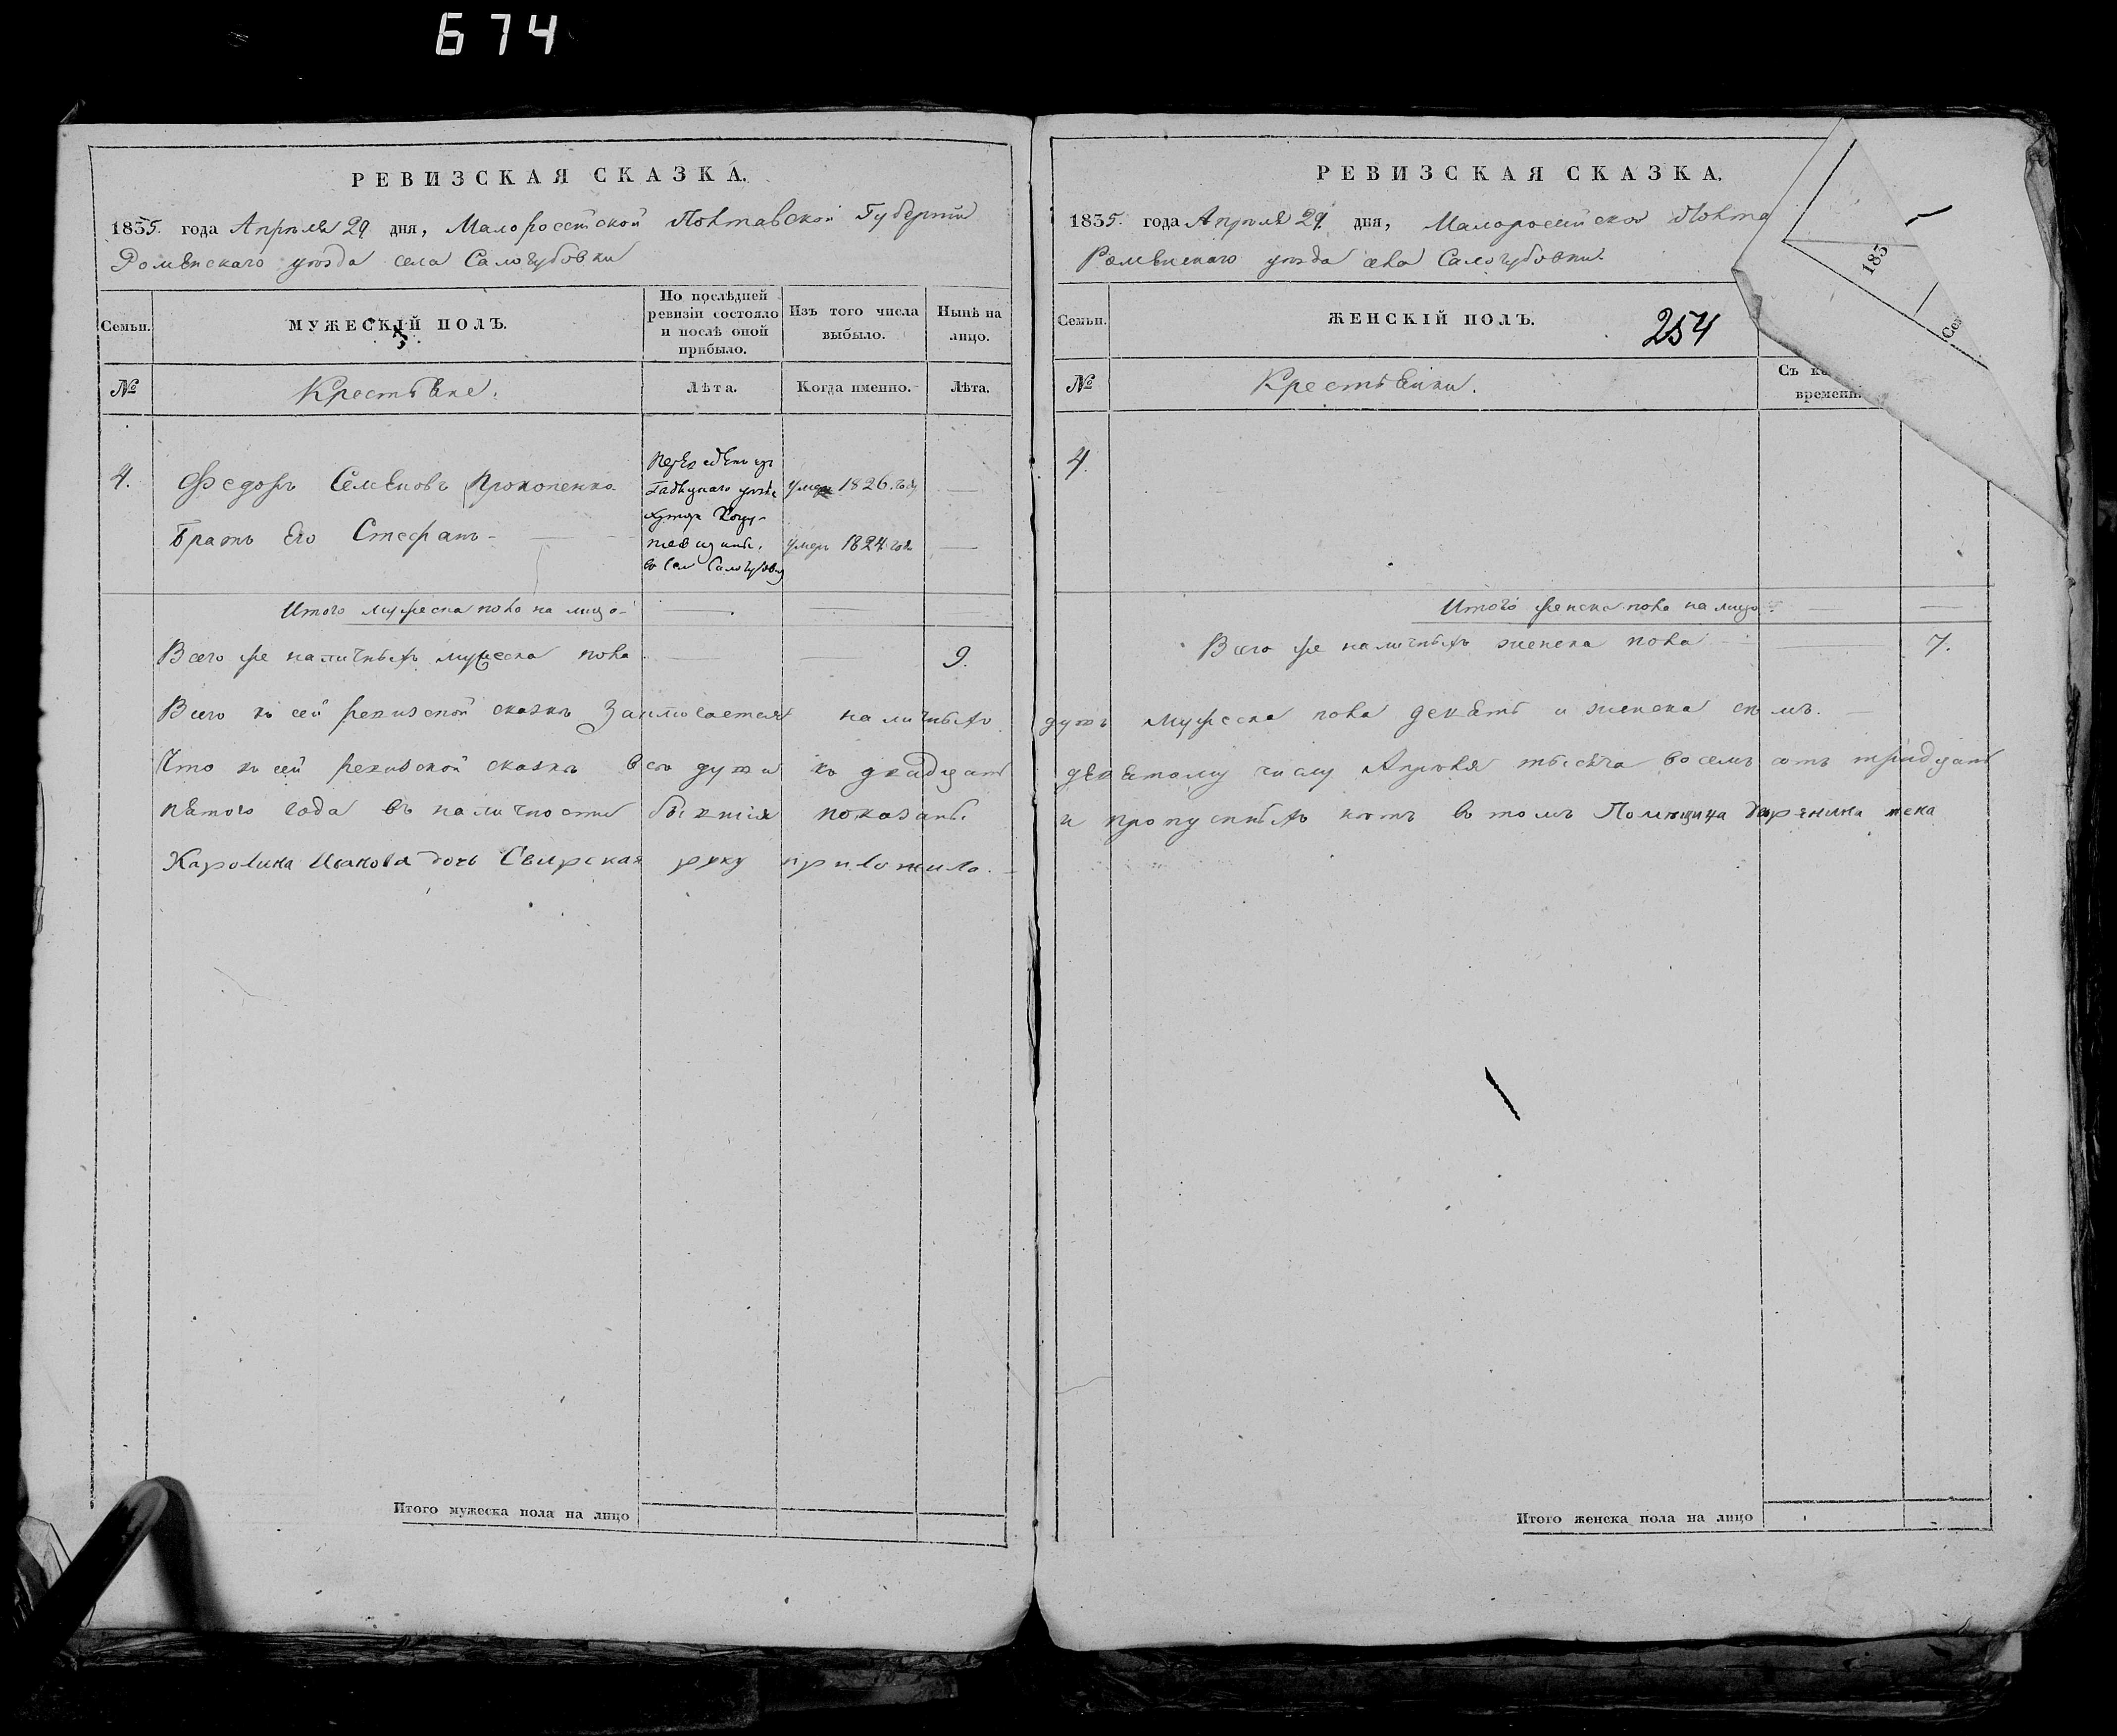 674
РЕВИЗСКАЯ СКАЗКА.
1835. года Апрѣля 29 дня, Малороссійской Полтавской Губерніи
Роменскаго уѣзда села Салогубовки
Семьи.
МУЖЕСКІЙ ПОЛЪ.
По послѣдней ревизіи состояло и послѣ оной прибыло.
Изъ того числа выбыло.
Нынѣ на лицо.
№
Крестьяне.
Лѣта.
Когда именно.
Лѣта.
4.
Федоръ Семеновъ Прокопенко
умеръ 1826. году
Братъ его Стефанъ
умеръ 1824 года
уѣзда
хутора
въ село Салогубовку
Итого мужеска пола на лицо
Всего же наличныхъ мужеска пола 9.
Всего въ сей ревизской сказкѣ заключается наличныхъ
Что въ сей ревизской сказкѣ все души къ двадцать
пятого года въ наличности бывшія показаны
Каролина Иванова дочь Свирская руку приложила.
РЕВИЗСКАЯ СКАЗКА.
1835. года Апрѣля 29. дня, Малороссійской Полта
Роменскаго уѣзда села Салогубовки.
Семьи.
ЖЕНСКІЙ ПОЛЪ.
254
183
Сем
№
Крестьянки.
Съ ко
времени.
4.
Итого женска пола на лицо
Всего же наличныхъ женска пола 7.
душъ мужеска пола девять и женска семъ.
девятому числу Апрѣля тысяча восемъ сотъ тридцать
и пропускныхъ нѣтъ въ томъ Помѣщица
Итого мужеска пола на лицо
Итого женска пола на лицо